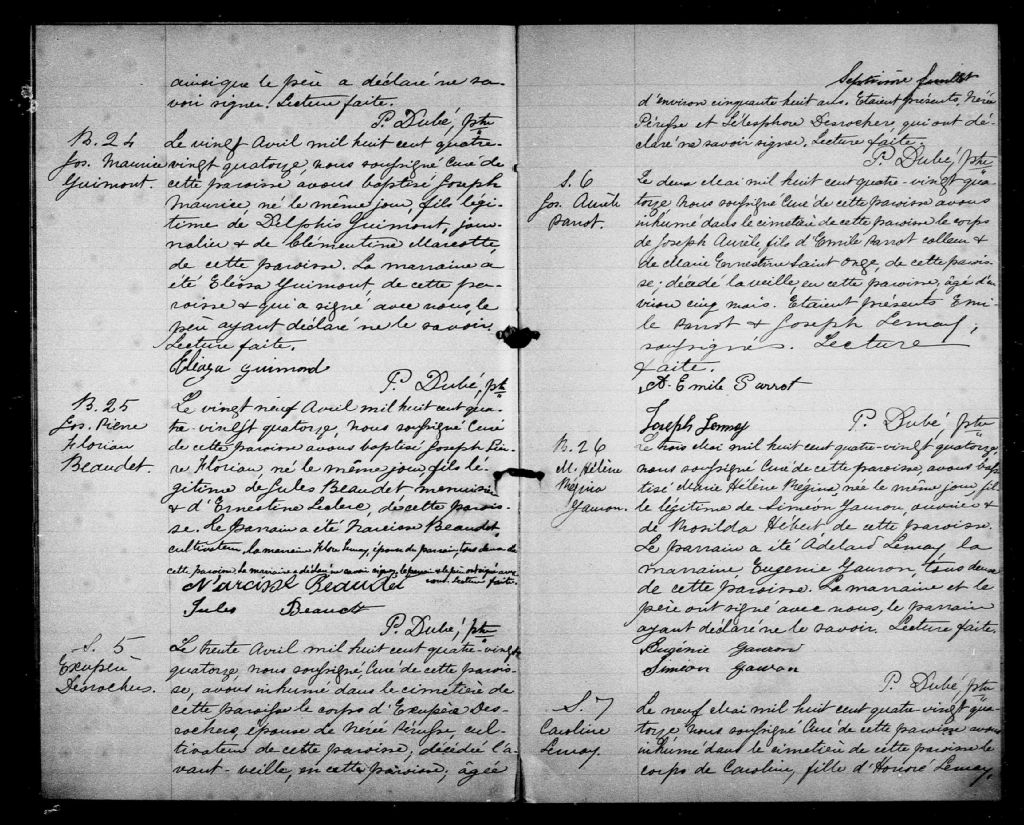 ainsi que le père a déclaré ne sa-
voir signer. Lecture faite.
P. Dubé, ptre
B. 24
Jos. Maurice
Guimont.
Le vingt Avril mil huit cent quatre-
vingt quatorze, nous soussigné Curé de
cette paroisse avons baptisé Joseph
Maurice né le même jour, fils légi-
time de Delphis Guimont, jour-
nalier & de Clémentine Marcotte,
de cette paroisse. La marraine a
été Guimont, de cette pa-
roisse & qui a signé avec nous, le
père ayant déclaré ne le savoir,
Lecture faite.
Eliaza Guimond
P. Dubé, ptre
B. 25
Jos. Pierre
Florian
Beaudet.
Le vingt neuf Avril mil huit cent qua-
tre-vingt quatorze, nous soussigné Curé
de cette paroisse avons baptisé Joseph Pier-
re Florian, né le même jour, fils lé-
gitime de Jules Beaudet menuisier
& d'Ernestine Leclerc, de cette parois-
se. Le Parrain a été Narcisse Beaudet
cultivateur, la marraine Lemay, épouse du parrain, tous deux de
cette paroisse. La marraine a déclaré ne savoir signer, le parrain & le père ont signé avec
nous. Lecture faite.
Narcisse Beaudet
Jules Beaudet
P. Dubé, ptre
S. 5
Exupère
Desrochers.
Le trente Avril mil huit cent quatre-vingt
quatorze, nous soussigné, Curé de cette parois-
se, avons inhumé dans le cimetière de
cette paroisse le corps d'Exupère Des-
rochers, épouse de Nérée Pérusse, cul-
tivateur de cette paroisse, décédée l'a-
vant-veille, en cette paroisse, âgée
Septième feuillet
d'environ cinquante huit ans. Etaient présents, Nérée
Pérusse et Télesphore Desrochers, qui ont dé-
claré ne savoir signer. Lecture faite.
P. Dubé, ptre
S. 6
Jos. Aurèle
Parrot.
Le deux Mai mil huit cent quatre-vingt qua-
torze nous soussigné Curé de cette paroisse avons
inhumé dans le cimetière de cette paroisse le corps
de Joseph Aurèle, fils d'Emile Parrot colleur &
de Marie Ernestine Saint Onge, de cette parois-
se; décédé la veille, en cette paroisse, âgé d'en-
viron cinq mois. Etaient présents Emi-
le Parrot & Joseph Lemay,
soussignés. Lecture
faite.
A. Emile Parrot
Joseph Lemay
P. Dubé, ptre
B. 26
M. Hélène
Régina
Gauron.
Le trois Mai mil huit cent quatre-vingt quatorze,
nous soussigné Curé de cette paroisse, avons bap-
tisé Marie Hélène Régina, née le même jour, fil-
le légitime de Siméon Gauron, ouvrier &
de Rosilda Hébert de cette paroisse.
Le parrain a été Adelard Lemay, la
marraine Eugénie Gauron tous deux
de cette paroisse. La marraine et le
père ont signé avec nous, le parrain
ayant déclaré ne le savoir. Lecture faite.
Eugenie Gauron
Simeon Gauron
P. Dubé, ptre
S. 7
Caroline
Lemay.
Le neuf Mai mil huit cent quatre-vingt qua-
torze nous soussigné Curé de cette paroisse avons
inhumé dans le cimetière de cette paroisse le
corps de Caroline, fille d'Honoré Lemay,